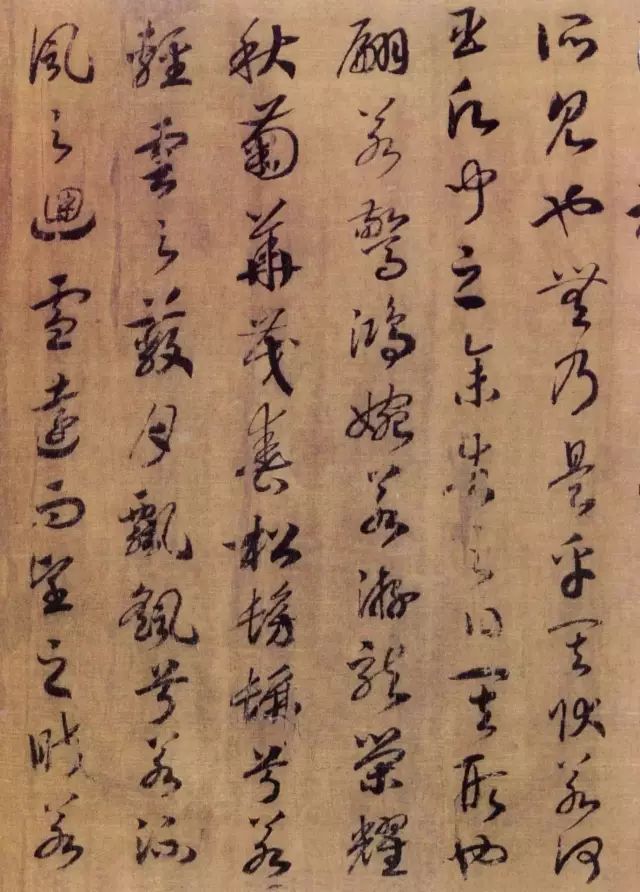 所見也無乃是乎其狀若何
臣願聞之余告之曰其形也
翩若驚鴻婉若游龍榮耀
秋菊華茂春松髣髴兮若
輕雲之蔽月飄颻兮若流
風之迴雪遠而望之皎若